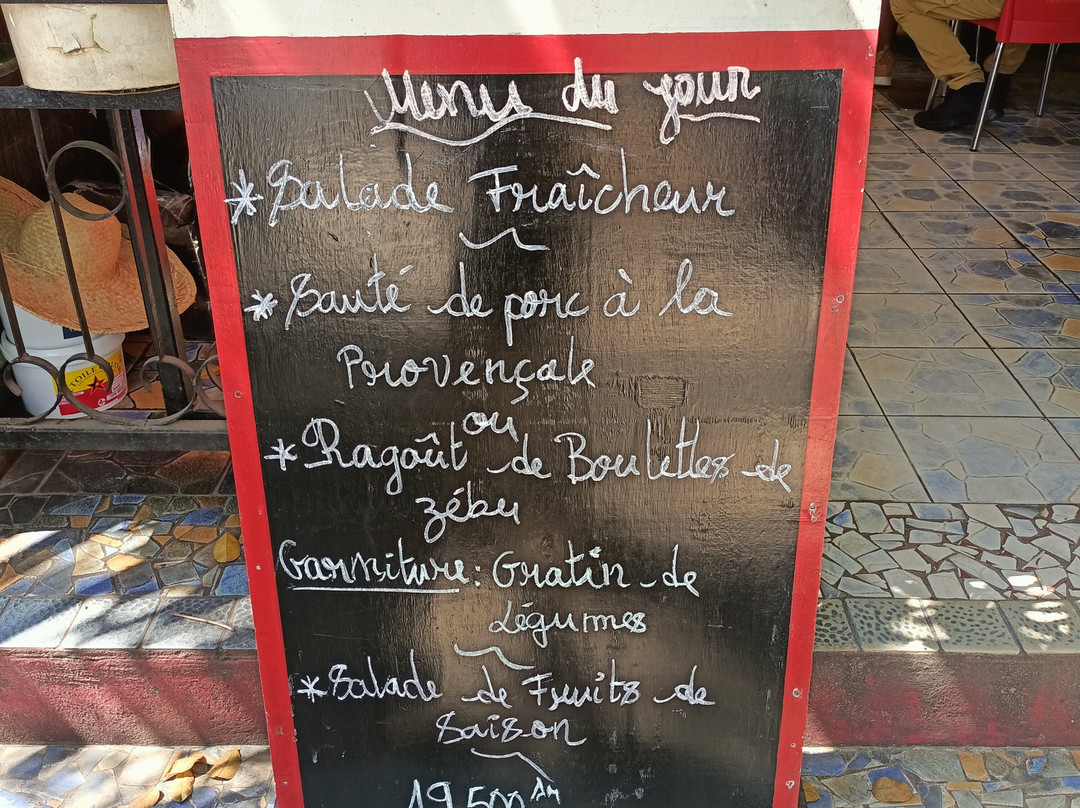 Menu du jour
* Salade Fraîcheur
* Sauté de porc à la
Provençale
ou
* Ragoût de Boulettes de
zébu
Garniture: Gratin de
Légumes
* Salade de Fruits de
Saison
19.500 Ar